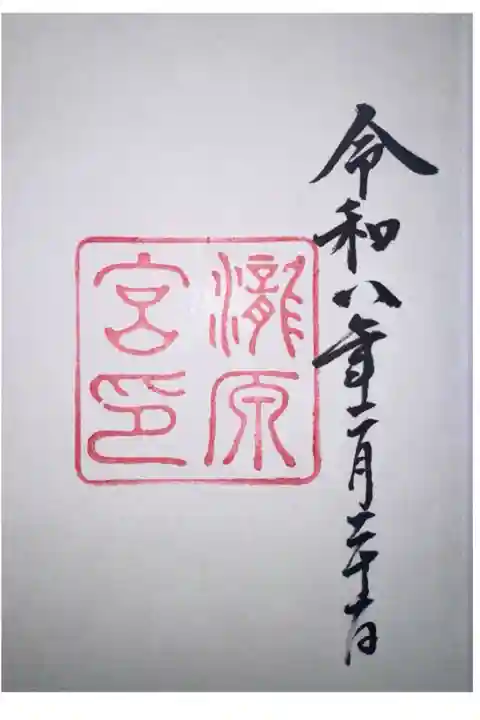 令和八年二月二十日
瀧原
宮印